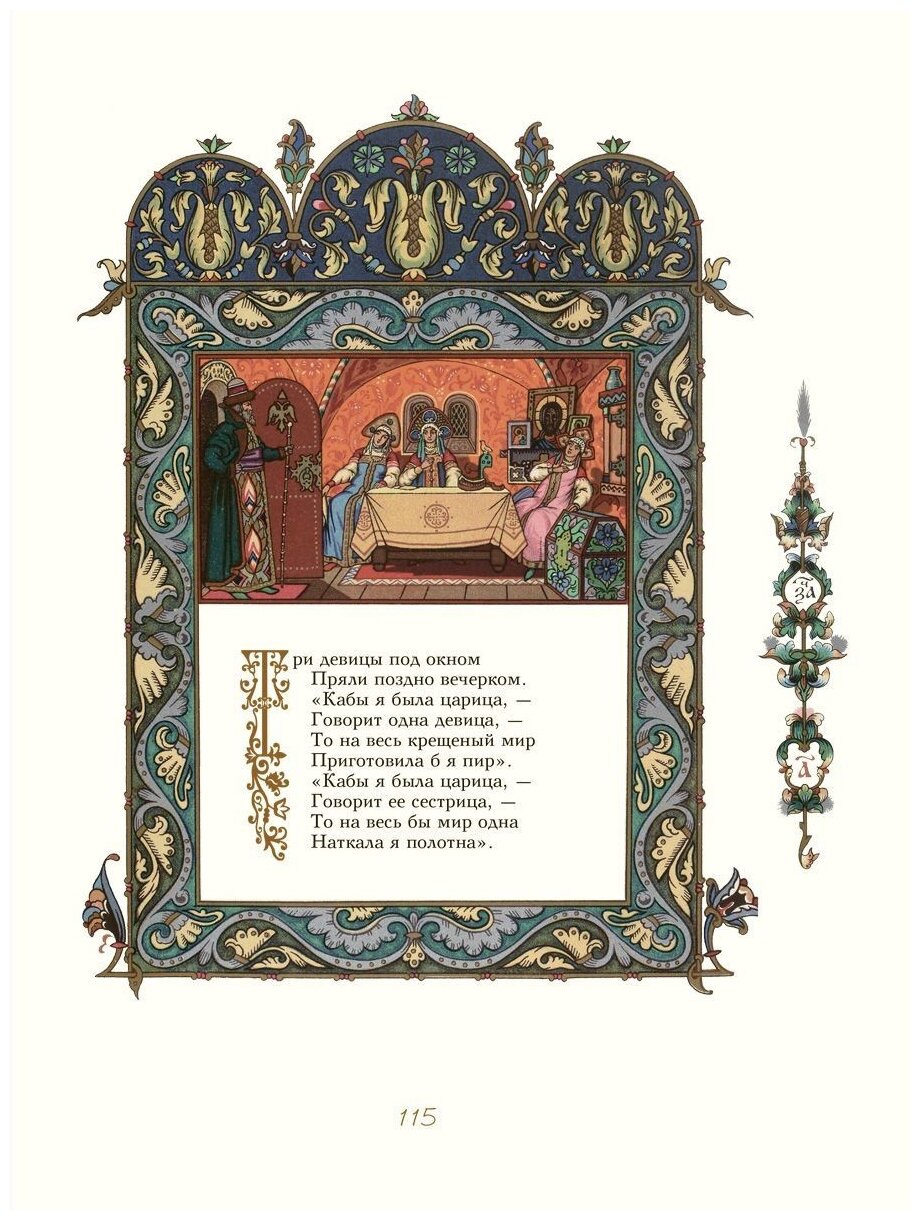 Три девицы под окном
Пряли поздно вечерком.
«Кабы я была царица, —
Говорит одна девица, —
То на весь крещеный мир
Приготовила б я пир».
«Кабы я была царица, —
Говорит ее сестрица, —
То на весь бы мир одна
Наткала я полотна».
за
а
115